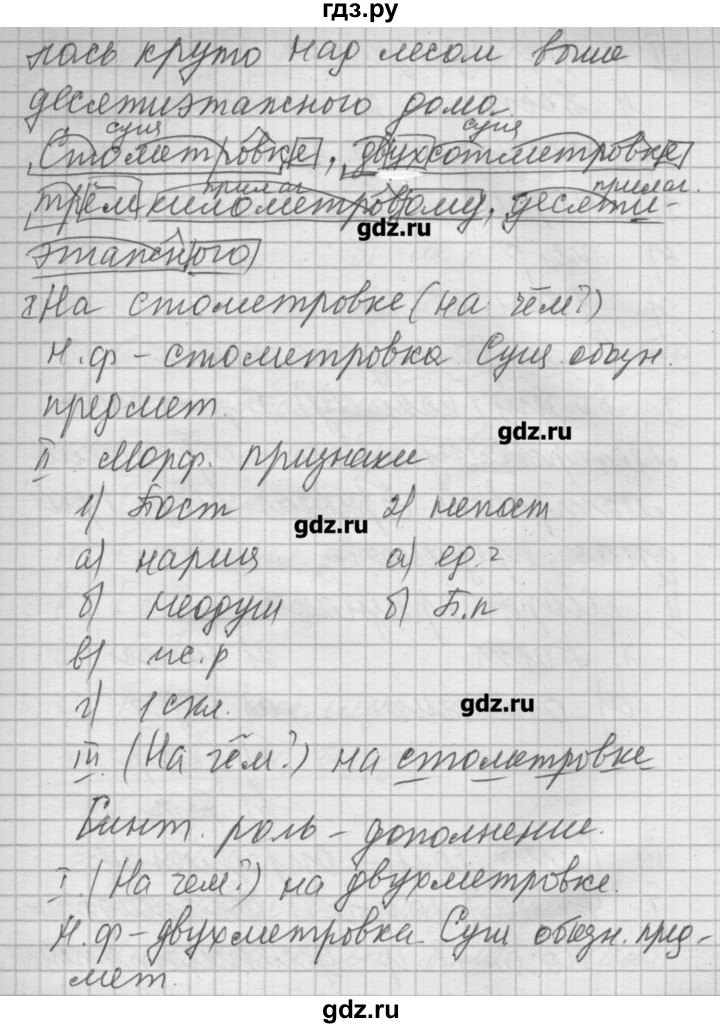 гдз.ру
лась круто над лесом выше
десятиэтажного дома
сущ сущ
Стометровке, двухсотметровке
прилаг прилаг.
трёмкилометровому, десяти-
gdz.ru
этажного
На стометровке (на чём?)
Н.ф - стометровка Сущ. обозн.
предмет.
gdz.ru
II Морф. признаки
1) Пост 2) непост
gdz.ru
а) нариц а) ед.ч
б) неодуш б) П.п
в) ж.р
г) 1 скл.
gdz.ru
III (На чём?) на стометровке
Синт. роль - дополнение.
I (На чем?) на двухметровке.
Н.ф - двухметровка Сущ обозн. пред-
мет.
gdz.ru